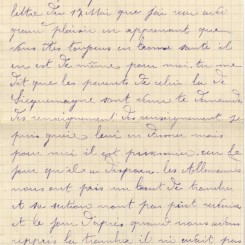 lettre du 12 Mai que j'ai reçu avec
grand plaisir en apprenant que
vous êtes toujours en bonne santé il
en est de même pour moi, tu me
dit que les parents de celui la de
sont venu te demandé
des renseignement des renseignement je
puis guère leur en donner mais
pour moi il est prisonnier, car le
jour qu'il a disparu, les Allemands
nous ont pris un bout de tranchée
et sa section n'ont pas pu
et le jour d'après quand nous avons
repris la tranchée il n'y était pas